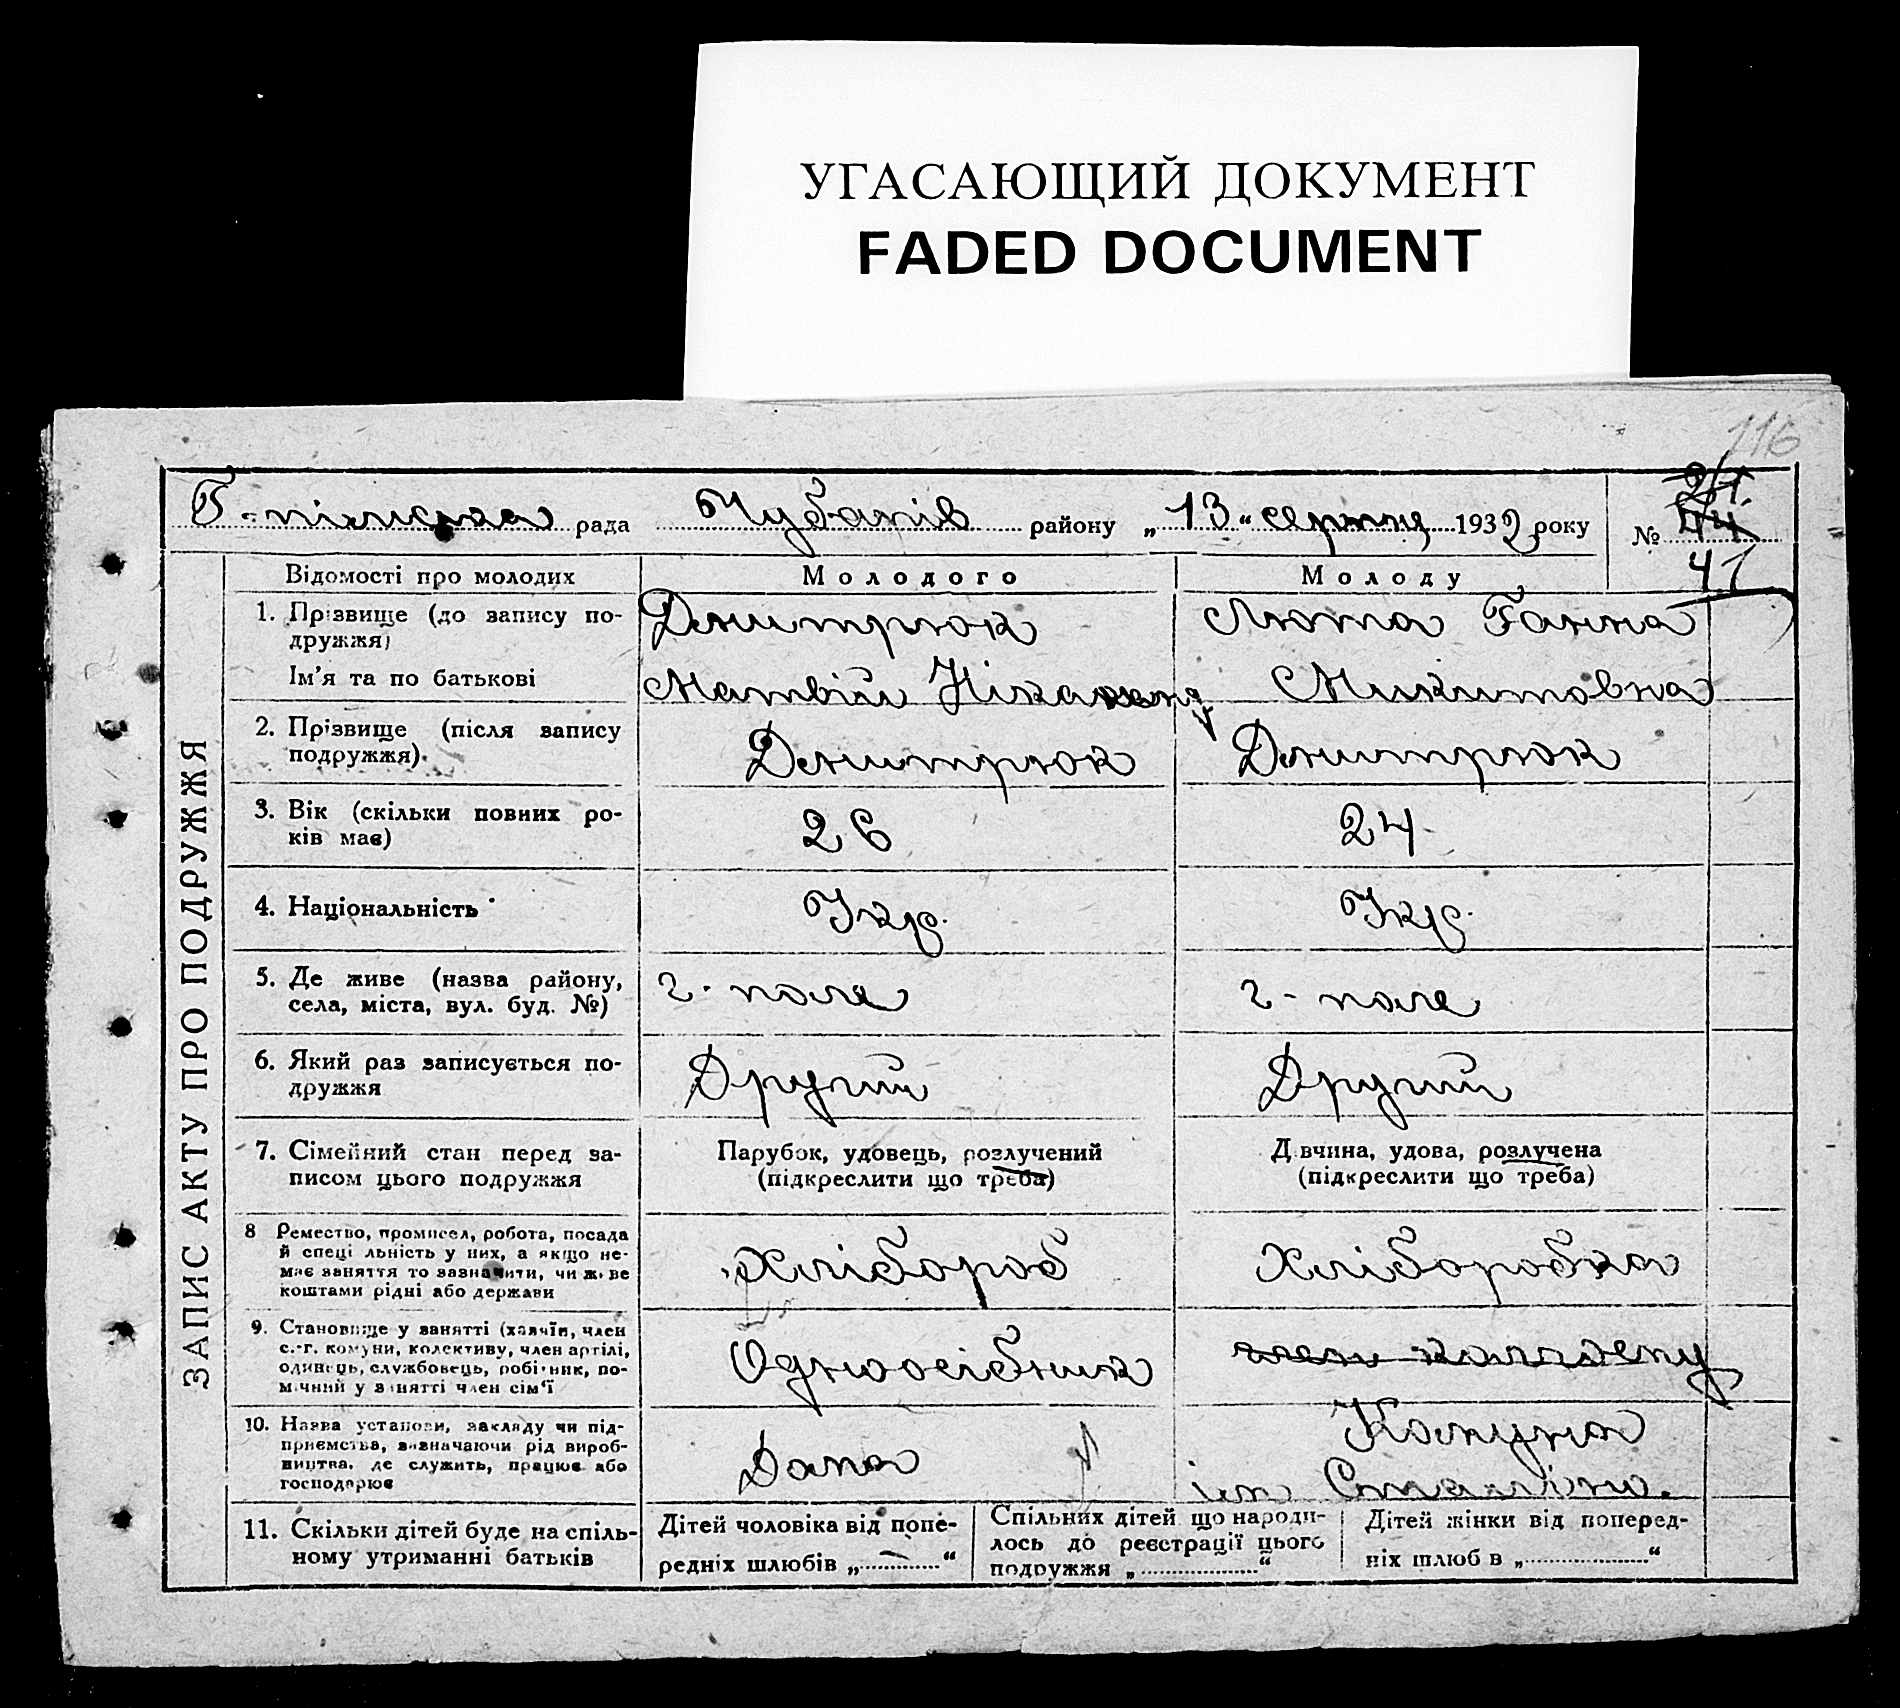 УГАСАЮЩИЙ ДОКУМЕНТ
FADED DOCUMENT
116
Г-пільська рада Чубарів району „13“ серпня 1932 року №
21.
44
41
ЗАПИС АКТУ ПРО ПОДРУЖЖЯ
Відомості про молодих Молодого Молоду
1. Прізвище (до запису по-
дружжя)
Дмитрюк Люта Ганна
Ім'я та по батькові Матвій Микитовна
2. Прізвище (після запису
подружжя).
Дмитрюк Дмитрюк
3. Вік (скільки повних ро-
ків має)
26 24
4. Національність Укр. Укр.
5. Де живе (назва району,
села, міста, вул. буд. №)
г-поле г-поле
6. Який раз записується по-
дружжя
Другий Другий
7. Сімейний стан перед за-
писом цього подружжя
Парубок, удовець, розлучений
(підкреслити що треба)
Дівчина, удова, розлучена
(підкреслити що треба)
8 Ремество, промисел, робота, посада
й спеціальність у них, а якщо не-
має заняття то зазначити, чи живе
коштами рідні або держави
Хлібороб Хліборобка
9. Становище у занятті (хазяїн, член
с.-г. комуни, колективу, член артілі,
одинець, службовець, робітник, по-
мічний у занятті член сім'ї
Одноосібник член
10. Назва установи, закладу чи під-
приємства, зазначаючи рід вироб-
ництва, де служить, працює або
господарює
Дома Комуна
ім Сталіна.
11. Скільки дітей буде на спіль-
ному утриманні батьків
Дітей чоловіка від попе-
редніх шлюбів „ – “
Спільних дітей що народи-
лось до реєстрації цього
подружжя „ “
Дітей жінки від поперед-
ніх шлюбів „ “